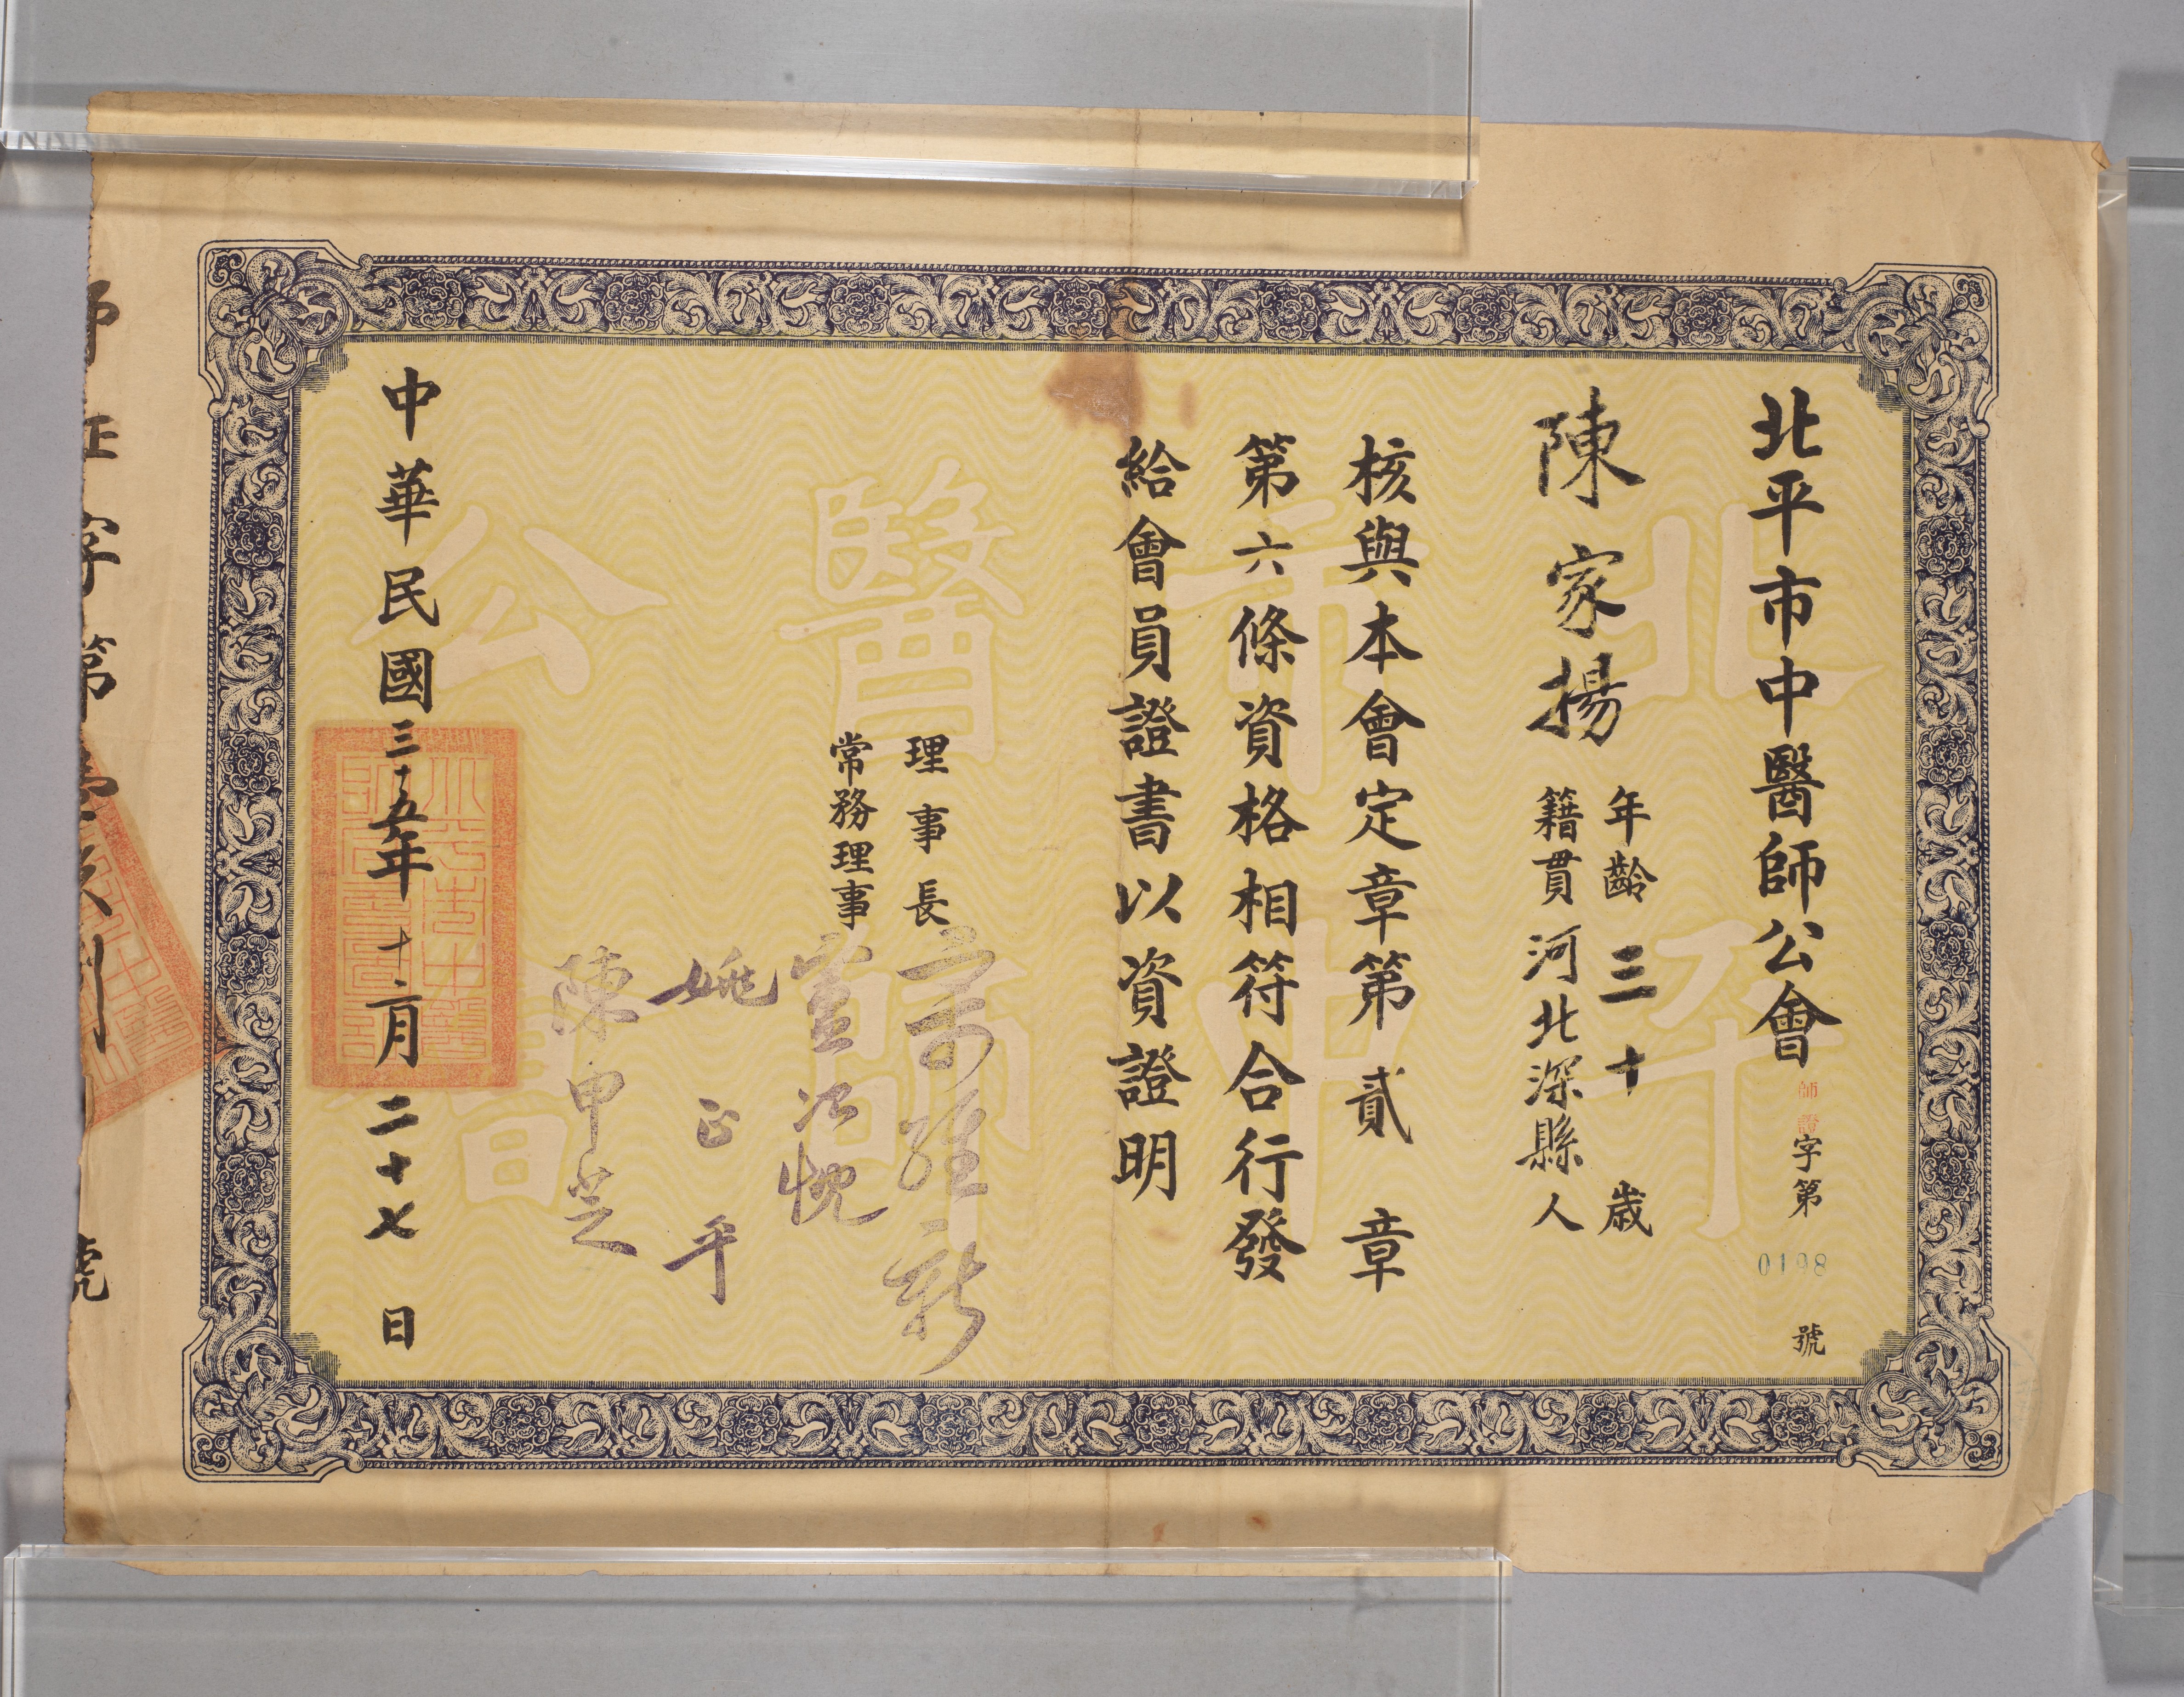 北平市中醫師公會 師證字第 0198 號
陳家揚
年齡 三十 歲
籍貫 河北深縣 人
核與本會定章第貳章
第六條資格相符合行發
給會員證書以資證明
理事長
常務理事 董德懋
姚正平
陳申芝
中華民國三十五年十二月二十七日
北平市中醫師公會
字第
號